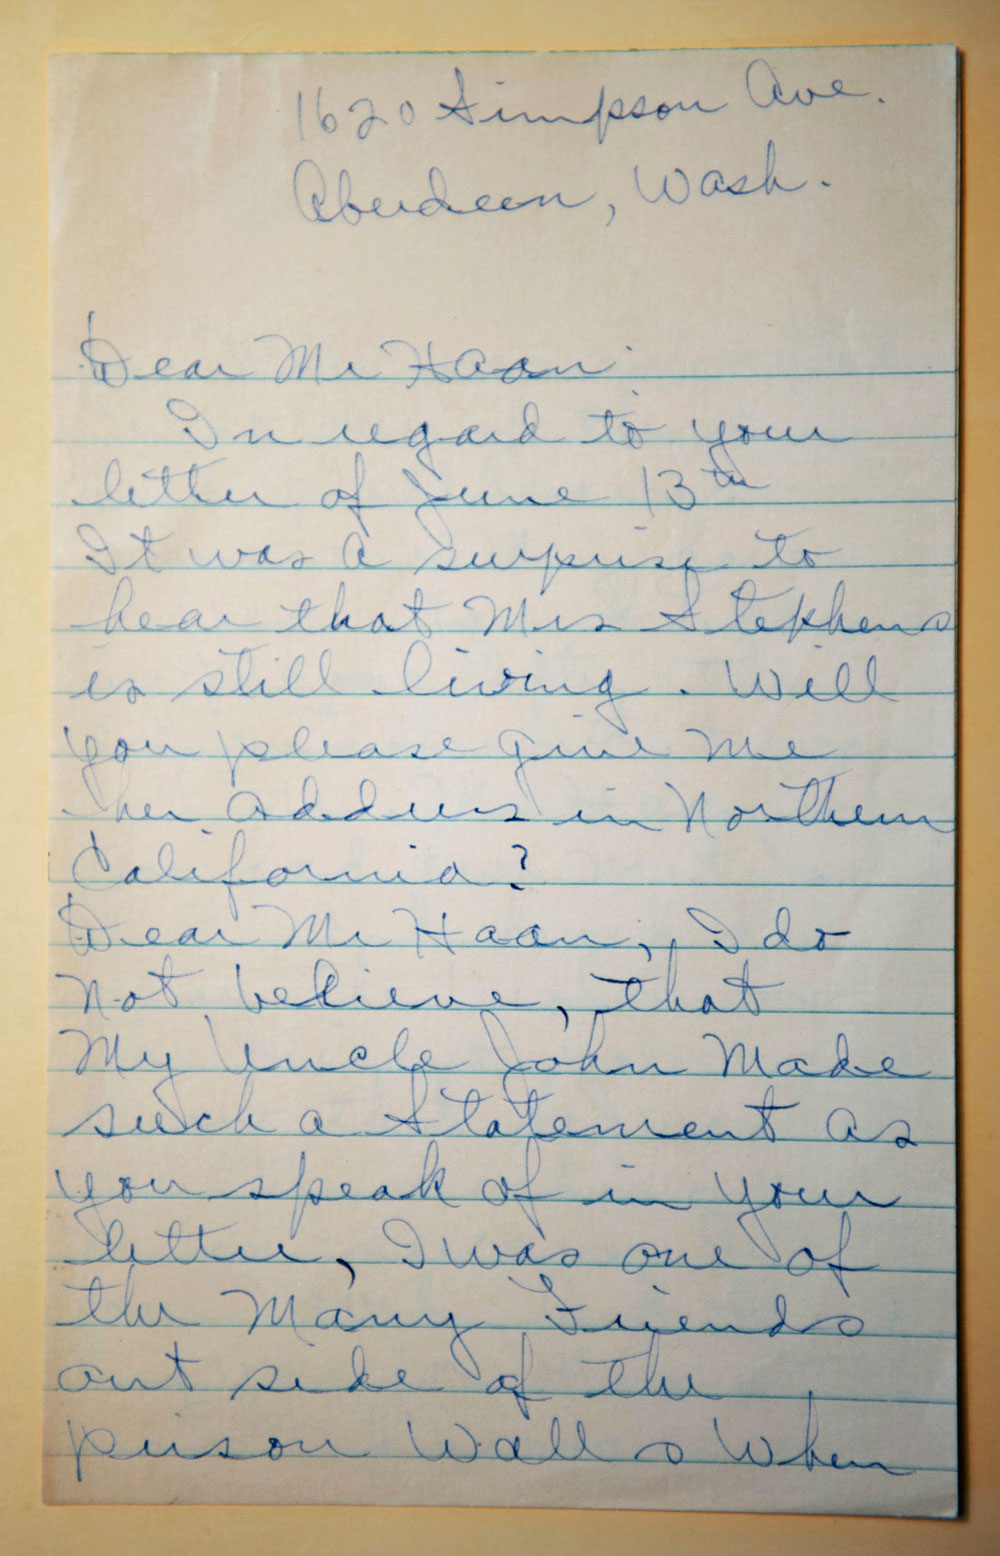 1620 Simpson Ave.
Aberdeen, Wash.
Dear Mr Haan:
In regard to your
letter of June 13th
It was a surprise to
hear that Mrs Stephens
is still living. Will
you please give me
her address in Northern
California?
Dear Mr Haan, I do
not believe, that
My Uncle John Made
such a Statement as
you speak of in your
letter, I was one of
the Many Friends
out side of the
prison Walls When